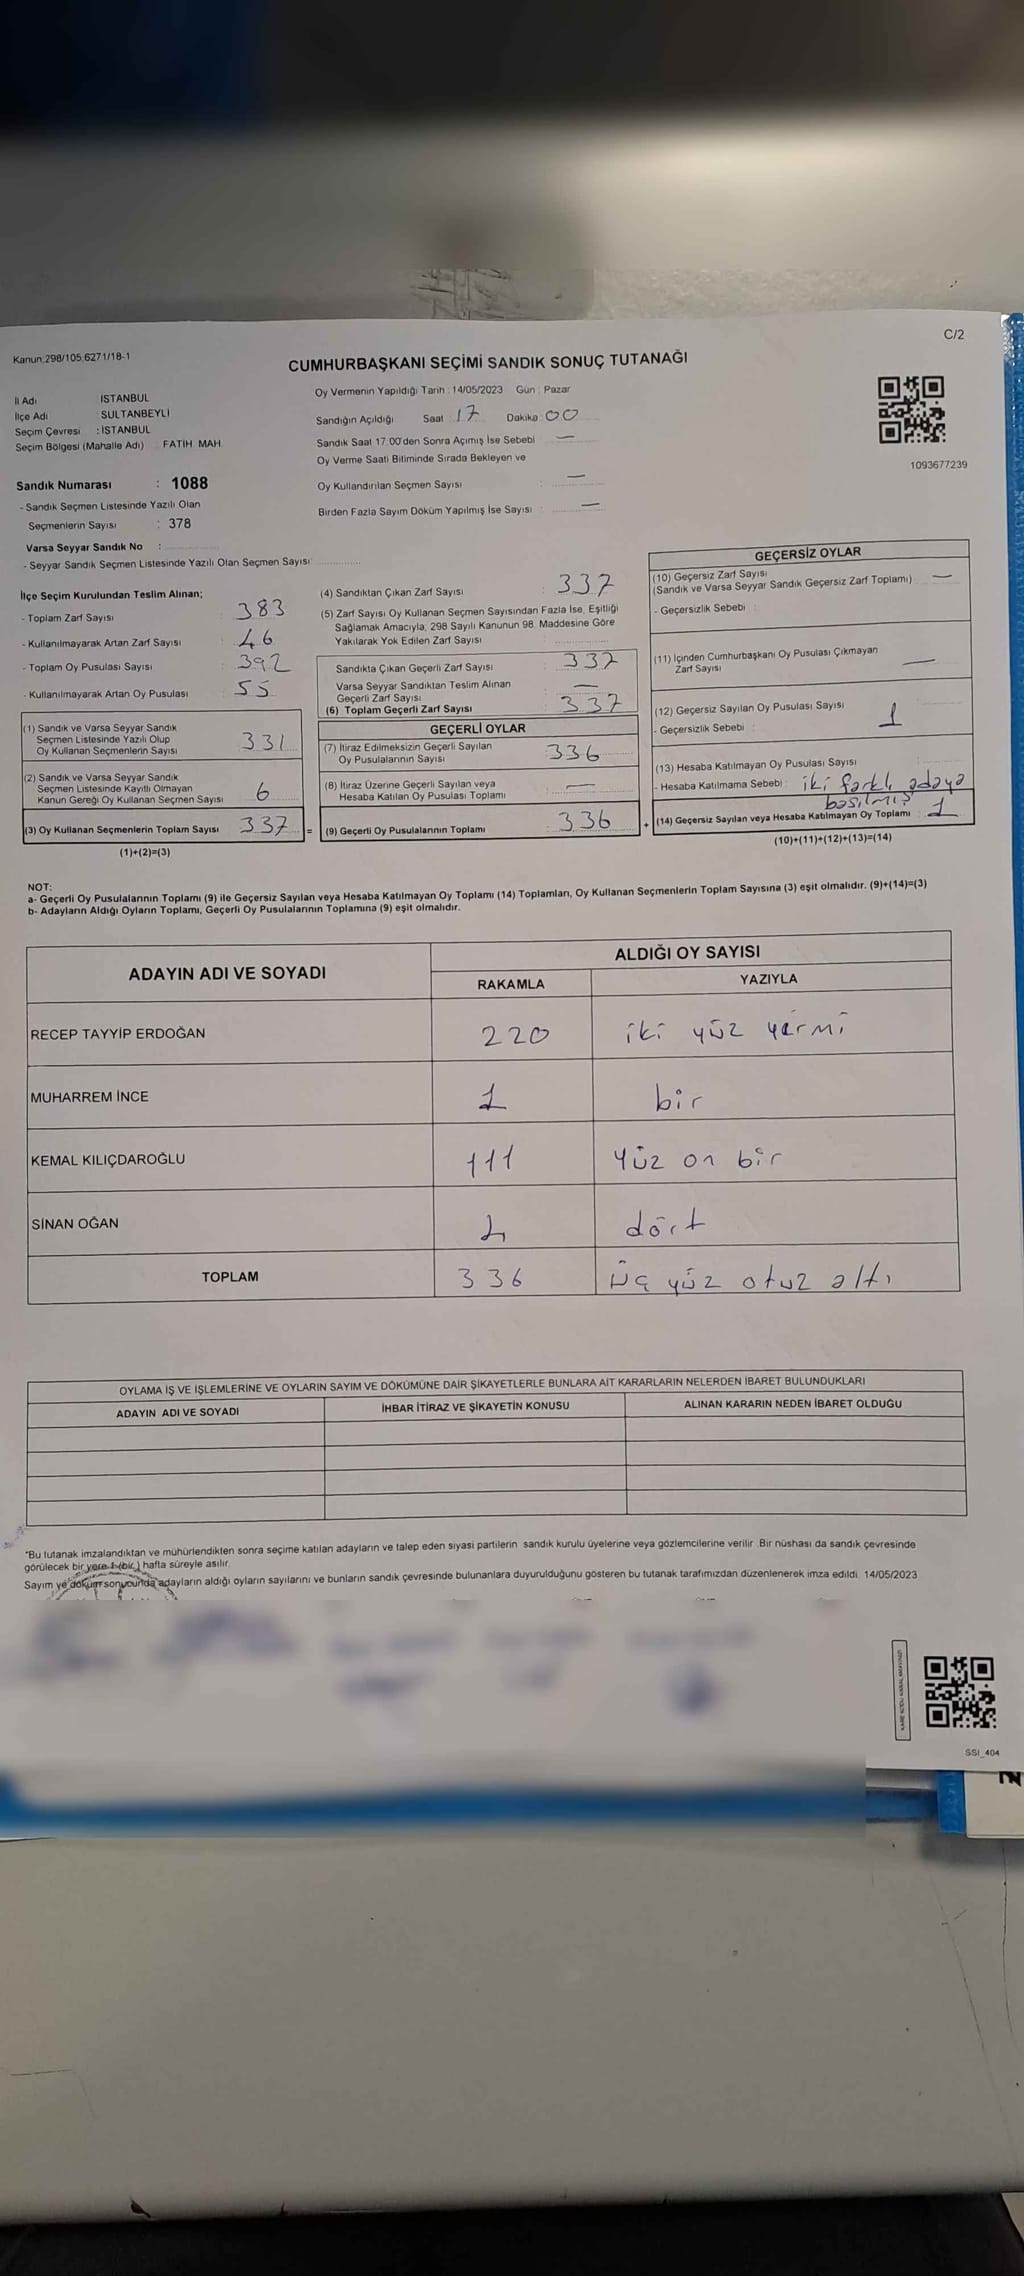 C/2
Kanun:298/105,6271/18-1
CUMHURBAŞKANI SEÇİMİ SANDIK SONUÇ TUTANAĞI
İl Adı İSTANBUL
İlçe Adı SULTANBEYLİ
Seçim Çevresi : İSTANBUL
Seçim Bölgesi (Mahalle Adı) FATİH MAH.
Sandık Numarası : 1088
- Sandık Seçmen Listesinde Yazılı Olan
Seçmenlerin Sayısı : 378
Varsa Seyyar Sandık No :
- Seyyar Sandık Seçmen Listesinde Yazılı Olan Seçmen Sayısı
Oy Vermenin Yapıldığı Tarih : 14/05/2023 Gün : Pazar
Sandığın Açıldığı Saat 17 Dakika 00
Sandık Saat 17:00'den Sonra Açımış İse Sebebi —
Oy Verme Saati Bitiminde Sırada Bekleyen ve
Oy Kullandırılan Seçmen Sayısı : —
Birden Fazla Sayım Döküm Yapılmış İse Sayısı : —
1093677239
İlçe Seçim Kurulundan Teslim Alınan;
- Toplam Zarf Sayısı : 383
- Kullanılmayarak Artan Zarf Sayısı : 46
- Toplam Oy Pusulası Sayısı : 392
- Kullanılmayarak Artan Oy Pusulası : 55
(1) Sandık ve Varsa Seyyar Sandık
Seçmen Listesinde Yazılı Olup
Oy Kullanan Seçmenlerin Sayısı 331
(2) Sandık ve Varsa Seyyar Sandık
Seçmen Listesinde Kayıtlı Olmayan
Kanun Gereği Oy Kullanan Seçmen Sayısı 6
(3) Oy Kullanan Seçmenlerin Toplam Sayısı 337 =
(1)+(2)=(3)
(4) Sandıktan Çıkan Zarf Sayısı : 337
(5) Zarf Sayısı Oy Kullanan Seçmen Sayısından Fazla İse, Eşitliği
Sağlamak Amacıyla, 298 Sayılı Kanunun 98. Maddesine Göre
Yakılarak Yok Edilen Zarf Sayısı
Sandıkta Çıkan Geçerli Zarf Sayısı : 337
Varsa Seyyar Sandıktan Teslim Alınan
Geçerli Zarf Sayısı —
(6) Toplam Geçerli Zarf Sayısı : 337
GEÇERLİ OYLAR
(7) İtiraz Edilmeksizin Geçerli Sayılan
Oy Pusulalarının Sayısı 336
(8) İtiraz Üzerine Geçerli Sayılan veya
Hesaba Katılan Oy Pusulası Toplamı : —
(9) Geçerli Oy Pusulalarının Toplamı : 336 +
GEÇERSİZ OYLAR
(10) Geçersiz Zarf Sayısı
(Sandık ve Varsa Seyyar Sandık Geçersiz Zarf Toplamı) : —
- Geçersizlik Sebebi :
(11) İçinden Cumhurbaşkanı Oy Pusulası Çıkmayan
Zarf Sayısı —
(12) Geçersiz Sayılan Oy Pusulası Sayısı : 1
- Geçersizlik Sebebi :
(13) Hesaba Katılmayan Oy Pusulası Sayısı
- Hesaba Katılmama Sebebi : iki farklı adaya
basılmış
(14) Geçersiz Sayılan veya Hesaba Katılmayan Oy Toplamı : 1
(10)+(11)+(12)+(13)=(14)
NOT:
a- Geçerli Oy Pusulalarının Toplamı (9) ile Geçersiz Sayılan veya Hesaba Katılmayan Oy Toplamı (14) Toplamları, Oy Kullanan Seçmenlerin Toplam Sayısına (3) eşit olmalıdır. (9)+(14)=(3)
b- Adayların Aldığı Oyların Toplamı, Geçerli Oy Pusulalarının Toplamına (9) eşit olmalıdır.
ADAYIN ADI VE SOYADI ALDIĞI OY SAYISI
RAKAMLA YAZIYLA
RECEP TAYYİP ERDOĞAN 220 iki yüz yirmi
MUHARREM İNCE 1 bir
KEMAL KILIÇDAROĞLU 111 yüz on bir
SİNAN OĞAN 4 dört
TOPLAM 336 üç yüz otuz altı
OYLAMA İŞ VE İŞLEMLERİNE VE OYLARIN SAYIM VE DÖKÜMÜNE DAİR ŞİKAYETLERLE BUNLARA AİT KARARLARIN NELERDEN İBARET BULUNDUKLARI
ADAYIN ADI VE SOYADI İHBAR İTİRAZ VE ŞİKAYETİN KONUSU ALINAN KARARIN NEDEN İBARET OLDUĞU
*Bu tutanak imzalandıktan ve mühürlendikten sonra seçime katılan adayların ve talep eden siyasi partilerin sandık kurulu üyelerine veya gözlemcilerine verilir. Bir nüshası da sandık çevresinde
görülecek bir yere 1 (bir) hafta süreyle asılır.
Sayım ve döküm sonucunda adayların aldığı oyların sayılarını ve bunların sandık çevresinde bulunanlara duyurulduğunu gösteren bu tutanak tarafımızdan düzenlenerek imza edildi. 14/05/2023
SSI_404